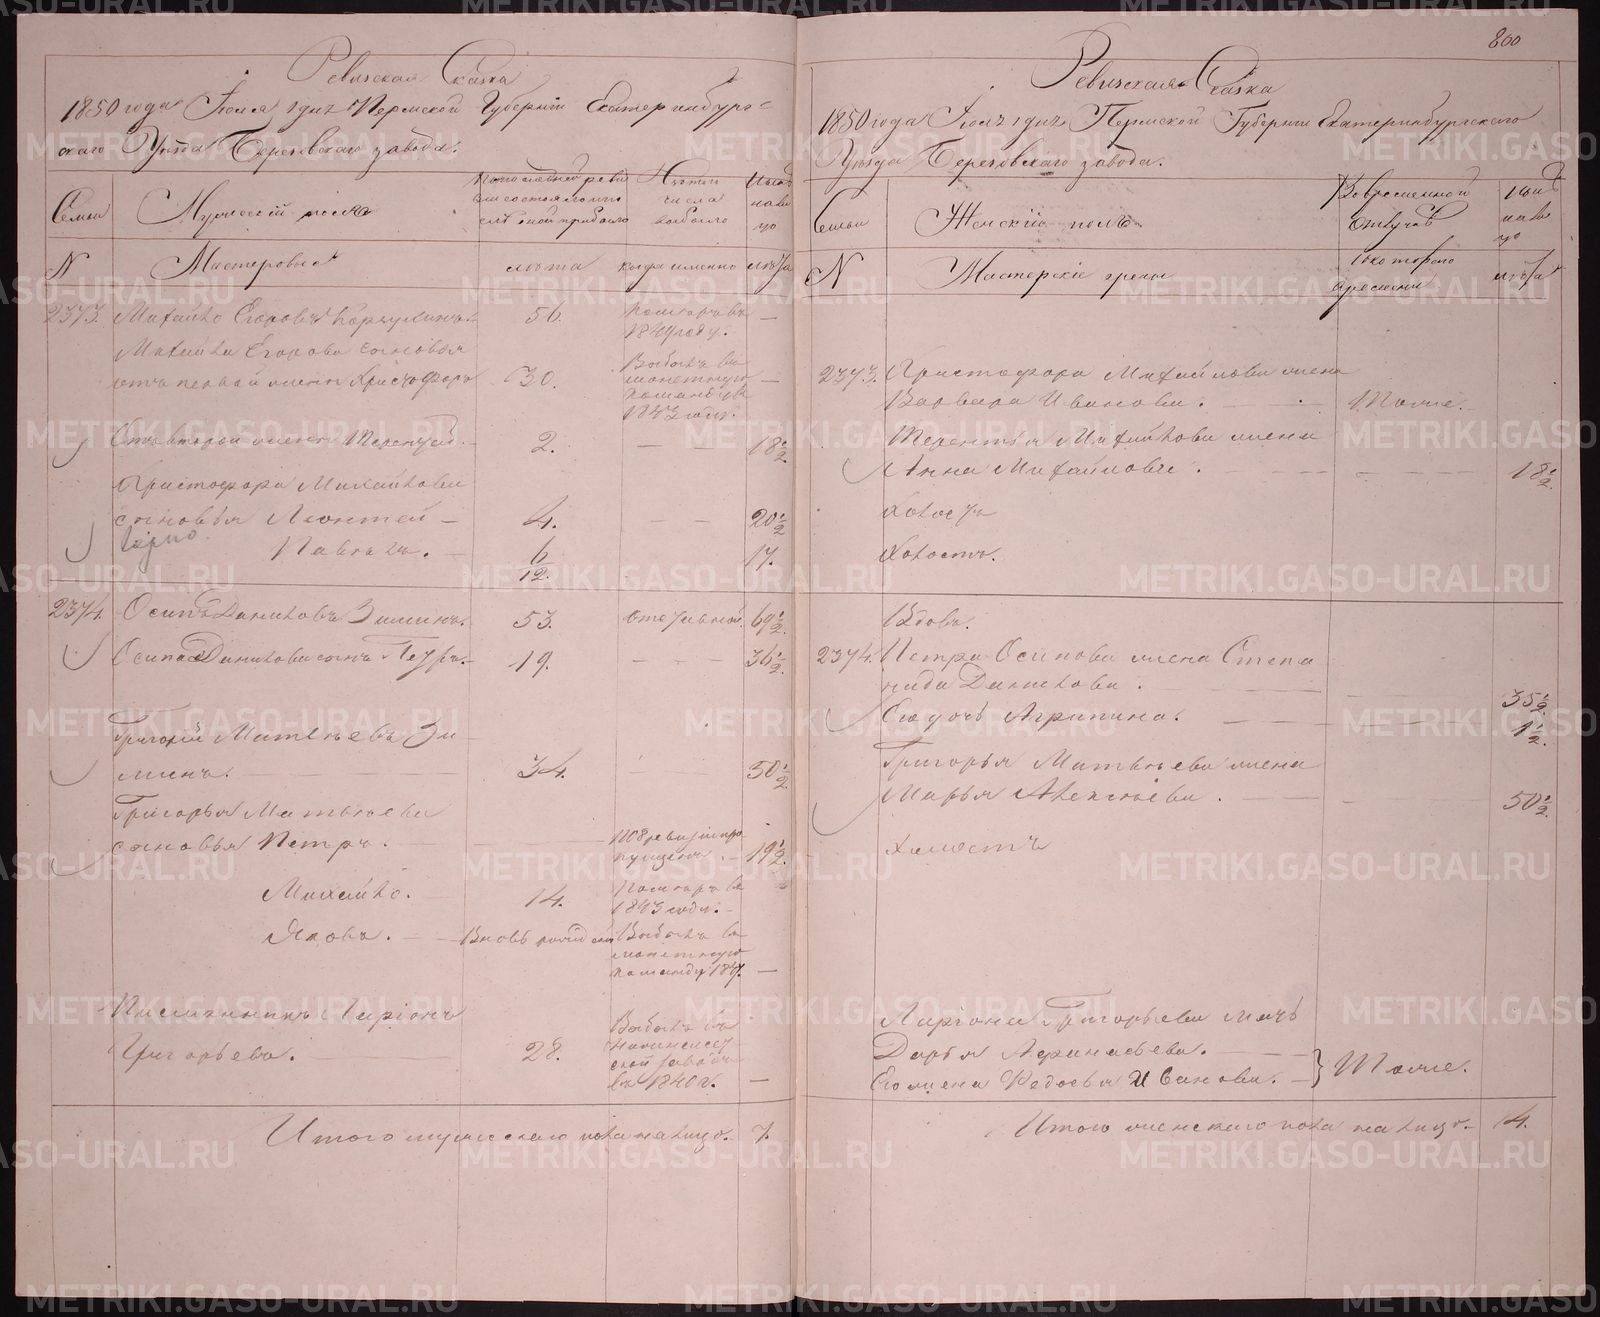 800
Ревизская Сказка
1850 года Июля 1 дня Пермской Губернии Екатеринбург=
скаго Уезда Березовскаго завода.
Семьи
Мужеский полъ
По последней реви
зии состояло и по
сле оной прибыло
Изъ того
числа
выбыло
Ныне
на ли
цо
N
Мастеровые
лета
когда именно
лета
2373. Михайло Егоровъ 56. Померъ въ —
1849 году.
Михайла Егорова сыновья
отъ первой жены Христофоръ 30. Выбылъ въ —
монетную
команду въ
1843 году.
Отъ второй жены Терентей. 2. — — 18½.
Христофора Михайлова
сыновья Леонтей — 4. — — 20½
Павелъ. — 6/12. 17.
2374. Осипъ Даниловъ Зиминъ. 53. отставной. 69½.
Осипа Данилова сынъ Петръ. 19. — — — 36½.
Григорій Матвеевъ Зи
минъ. 34. — — 50½
Григорья Матвеева
сыновья Петръ. — по 8 ревизіи про
пущенъ. — 19½.
Михайло. — 14. Померъ въ
1843 году. —
Яковъ. — Вновь рожденъ Выбылъ въ
монетную
команду 1847. —
Ларіонъ
Григорьевъ. 28. Выбылъ въ
ской заводъ
въ 1840 г. —
Итого мужескаго пола на лицо. 7.
Ревизская Сказка
1850 года Июля 1 дня Пермской Губерніи Екатеринбургскаго
Уезда Березовскаго завода.
Семьи
Женскій полъ.
Во временной
отлучке
Ныне
на ли
цо
N
Мастерскіе жены
съ котораго
времени
лета
2373. Христофора Михайлова жена
Варвара Иванова. — Тоже.
Терентья Михайлова жена
Анна Михайлова. — 18½.
Холостъ
Холостъ.
Вдовъ.
2374. Петра Осипова жена Степа
нида Данилова. 35½
Его дочь Агрипина. — 1½.
Григорья Матвеева жена
Марья Алексеева. — 50½.
Холостъ
Ларіона Григорьева мать
Дарья Афанасьева. —
Его жена Федосья Иванова. — } Тоже.
Итого женскаго пола на лицо. — 4.
METRIKI.GASO-URAL.RU